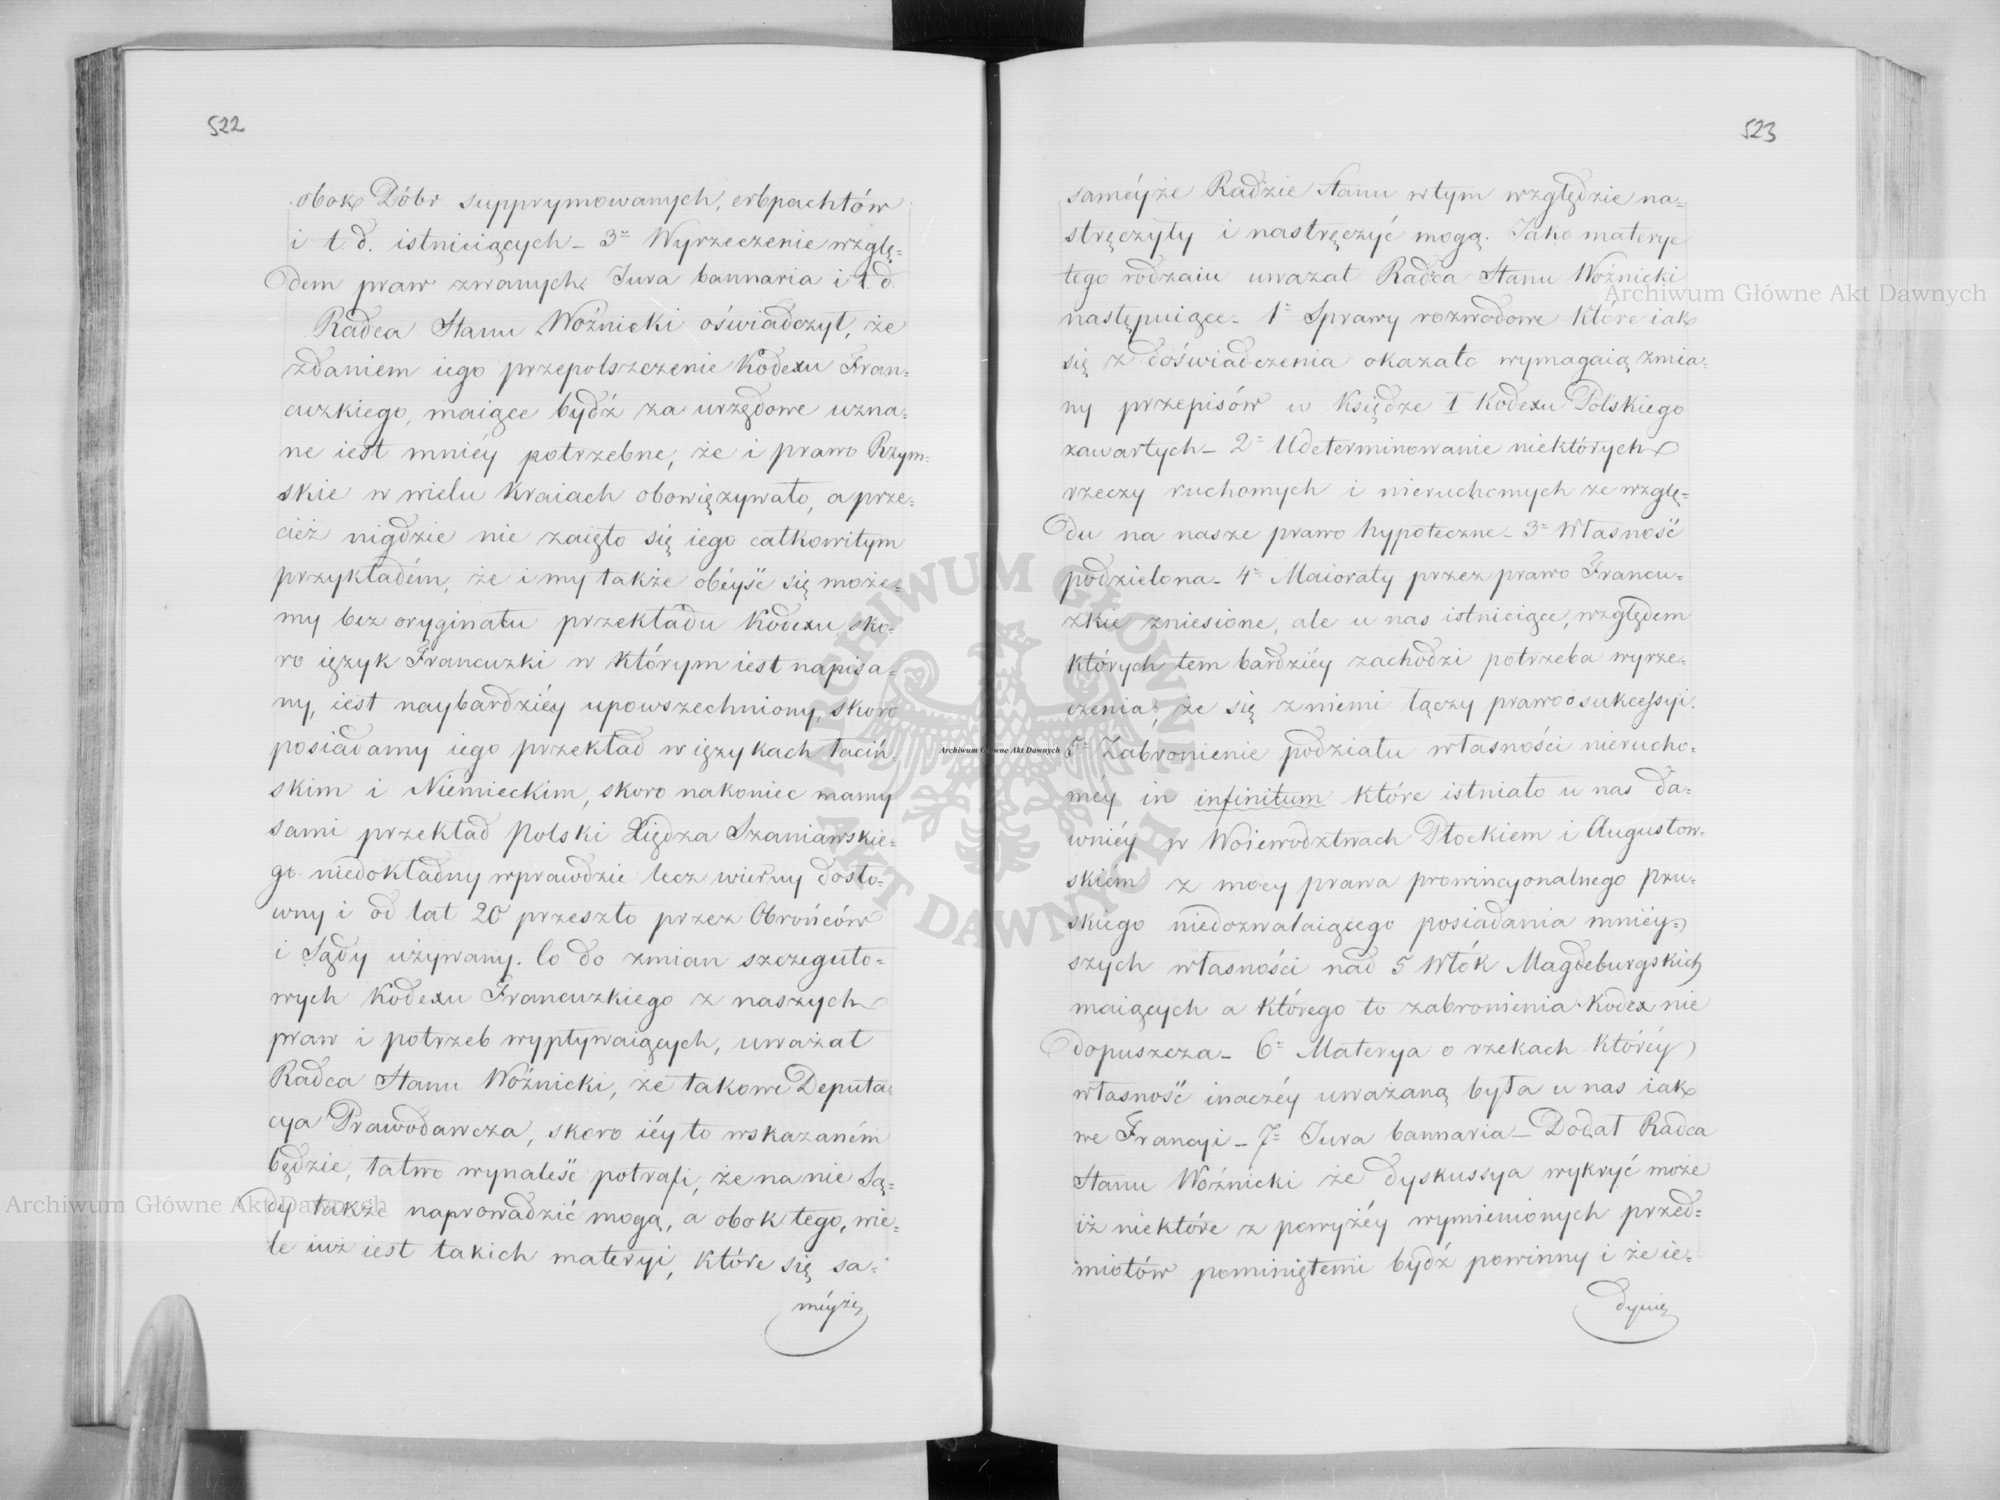 522
obok Dóbr supprymowanych, erbpachtów
i t. d. istnieiących – 3= Wyrzeczenie wzglę=
dem praw zwanych Jura bannaria i t. d.
Radca Stanu Woźnicki oświadczył, że
zdaniem iego przepolszczenie Kodexu Fran=
cuzkiego, maiące bydź za urzędowe uzna=
ne iest mniéy potrzebne, że i prawo Rzym=
skie w wielu Kraiach obowięzywało, a prze=
cież nigdzie nie zaięto się iego całkowitym
przykładém, że i my także obéyść się może=
my bez oryginału przekładu Kodexu, sko=
ro ięzyk Francuzki w którym iest napisa=
ny, iest naybardziéy upowszechniony, skoro
posiadamy iego przekład w ięzykach łaciń=
skim i Niémieckim, skoro nakoniec mamy
sami przekład Polski Xiędza Szaniawskie=
go niedokładny wprawdzie lecz wierny dosło=
wny i od lat 20 przeszło przez Obrońców
i Sądy używany. Co do zmian szczeguło=
wych Kodexu Francuzkiego z naszych
praw i potrzeb wypływaiących, uważał
Radca Stanu Woźnicki, że takowe Deputa=
cya Prawodawcza, skoro iéy to wskazaném
będzie, łatwo wynaleść potrafi, że na nie Są=
dy także naprowadzić mogą, a obok tego, wie=
le iuż iest takich materyi, które się sa=
méyże
523
saméyże Radzie Stanu w tym względzie na=
stręczyły i nastręczyć mogą. Jako materye
tego rodzaiu uważał Radca Stanu Woźnicki
następuiące – 1= Sprawy rozwodowe które iak
się z doświadczenia okazało wymagaią zmia=
ny przepisów w Księdze I Kodexu Polskiego
zawartych – 2= Udeterminowanie niektórych
rzeczy ruchomych i nieruchomych ze wzglę=
du na nasze prawo hypoteczne – 3= Własność
podzielona – 4= Maioraty przez prawo Francu=
zkie zniesione, ale u nas istnieiące, względem
których tem bardziéy zachodzi potrzeba wyrze=
czenia, że się z niemi łączy prawo o sukcessyi.
5= Zabronienie podziału własności nierucho=
méy in infinitum które istniało u nas da=
wniéy w Woiewodztwach Płockiem i Augustow=
skiém z mocy prawa prowincyonalnego pru=
skiego niedozwalaiącego posiadania mniéy=
szych własności nad 5 Włók Magdeburgskich
maiących a którego to zabronienia Kodex nie
dopuszcza – 6= Materya o rzekach któréy
własność inaczéy uważaną była u nas iak
we Francyi – 7= Jura bannaria – Dodał Radca
Stanu Woźnicki że dyskussya wykryć może
iż niektóre z powyżéy wymienionych przed=
miotów pominiętemi bydź powinny i że ie=
dynie
Archiwum Główne Akt Dawnych
Archiwum Główne Akt Dawnych
Archiwum Główne Akt Dawnych
ARCHIWUM GŁÓWNE AKT DAWNYCH